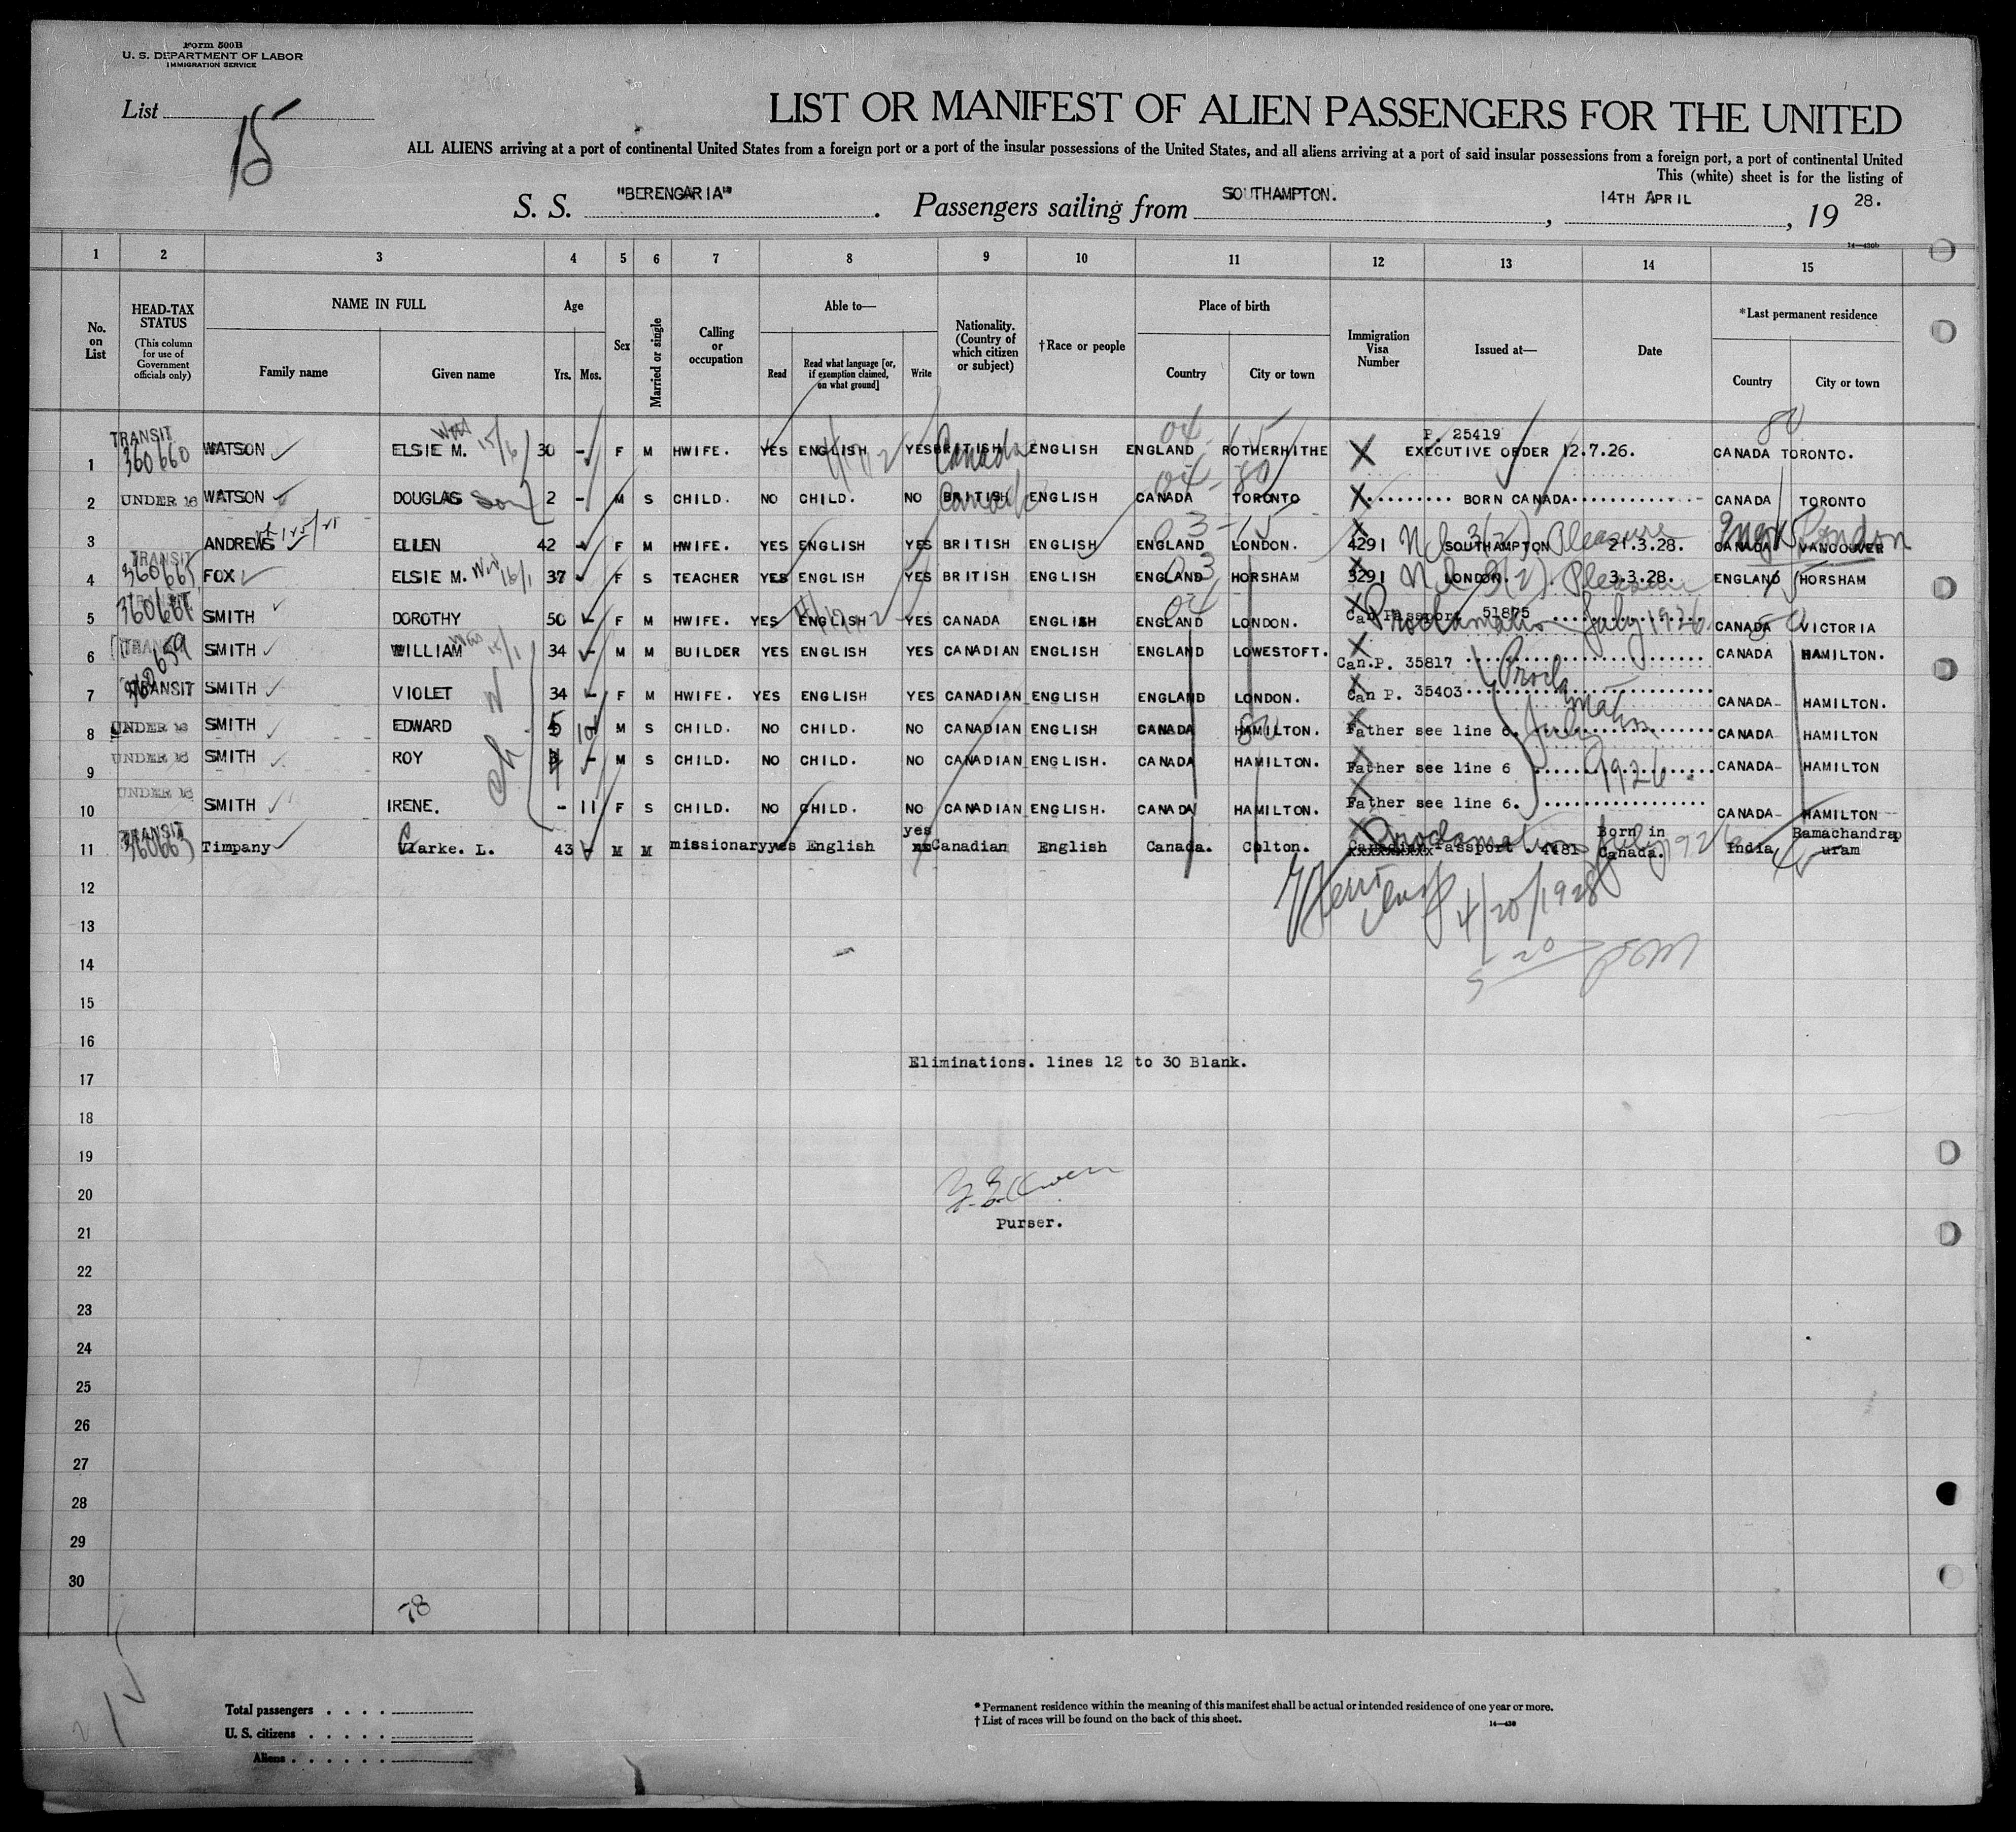 Form 500B
U. S. DEPARTMENT OF LABOR
IMMIGRATION SERVICE
List 15
LIST OR MANIFEST OF ALIEN PASSENGERS FOR THE UNITED
ALL ALIENS arriving at a port of continental United States from a foreign port or a port of the insular possessions of the United States, and all aliens arriving at a port of said insular possessions from a foreign port, a port of continental United
This (white) sheet is for the listing of
S. S. "BERENGARIA". Passengers sailing from SOUTHAMPTON. , 14TH APRIL , 19 28.
14—430b
1 2 3 4 5 6 7 8 9 10 11 12 13 14 15
No. on List
HEAD-TAX STATUS
(This column for use of Government officials only)
NAME IN FULL
Family name
Given name
Age
Yrs. Mos.
Sex
Married or single
Calling or occupation
Able to—
Read
Read what language [or, if exemption claimed, on what ground]
Write
Nationality. (Country of which citizen or subject)
†Race or people
Place of birth
Country
City or town
Immigration Visa Number
Issued at—
Date
*Last permanent residence
Country
City or town
80
P. 25419
1 TRANSIT 360660 WATSON ELSIE M. 30 - F M HWIFE. YES ENGLISH YES BRITISH Canada ENGLISH ENGLAND ROTHERHITHE EXECUTIVE ORDER 12.7.26. CANADA TORONTO.
2 UNDER 16 WATSON DOUGLAS Son 2 - M S CHILD. NO CHILD. NO BRITISH Canada ENGLISH CANADA TORONTO BORN CANADA CANADA TORONTO
3 ANDREWS ELLEN 42 - F M HWIFE. YES ENGLISH YES BRITISH ENGLISH ENGLAND LONDON. 4291 SOUTHAMPTON Pleasure 21.3.28. CANADA VANCOUVER London
4 TRANSIT 360665 FOX ELSIE M. 37 F S TEACHER YES ENGLISH YES BRITISH ENGLISH ENGLAND HORSHAM 3291 LONDON. 3(2) Pleasure 3.3.28. ENGLAND HORSHAM
5 SMITH DOROTHY 50 - F M HWIFE. YES ENGLISH YES CANADA ENGLISH ENGLAND LONDON. Can Passport 51875 Proclamation July 1926 CANADA VICTORIA
6 TRANSIT SMITH WILLIAM 34 - M M BUILDER YES ENGLISH YES CANADIAN ENGLISH ENGLAND LOWESTOFT. Can.P. 35817 CANADA HAMILTON.
7 TRANSIT SMITH VIOLET 34 - F M HWIFE. YES ENGLISH YES CANADIAN ENGLISH ENGLAND LONDON. Can P. 35403 Proclamation CANADA HAMILTON.
8 UNDER 16 SMITH EDWARD 5 10 M S CHILD. NO CHILD. NO CANADIAN ENGLISH CANADA HAMILTON. Father see line 6. July CANADA HAMILTON
9 UNDER 16 SMITH ROY 4 - M S CHILD. NO CHILD. NO CANADIAN ENGLISH. CANADA HAMILTON. Father see line 6 1926 CANADA HAMILTON
10 UNDER 16 SMITH IRENE. - 11 F S CHILD. NO CHILD. NO CANADIAN ENGLISH. CANADA HAMILTON. Father see line 6. CANADA HAMILTON
11 TRANSIT 360663 Timpany Clarke. L. 43 M M missionary yes English yes Canadian English Canada. Colton. Passport . 4481 Proclamation July 1926 Born in Canada. India Ramachandrapuram
12
4/20/1928
13
14
15
16
Eliminations. lines 12 to 30 Blank.
17
18
19
20
Purser.
21
22
23
24
25
26
27
28
29
30
78
Total passengers
U. S. citizens
Aliens
* Permanent residence within the meaning of this manifest shall be actual or intended residence of one year or more.
† List of races will be found on the back of this sheet.
14—430